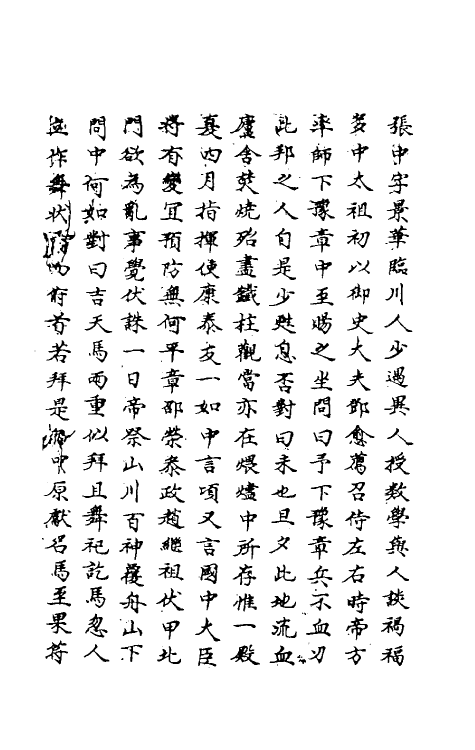 張中字景華臨川人少遇異人授数學與人談禍福
多中太祖初以御史大夫鄧愈薦召侍左右時帝方
率師下豫章中至賜之坐問曰予下豫章兵不血刃
此邦之人自是少甦息否對曰未也且夕此地流血
廬舍焚燒殆盡鐵柱觀當亦在煨燼中所存惟一殿
夏四月指揮使康泰反一如中言頃又言國中大臣
將有變宜預防無何平章邵榮叅政趙繼祖伏甲北
門欲為亂事覺伏誅一日帝祭山川百神覆舟山下
問中何如對曰吉天馬西重似拜且舞祀訖馬忽人
作舞状府首若拜是中原獻名馬至果符